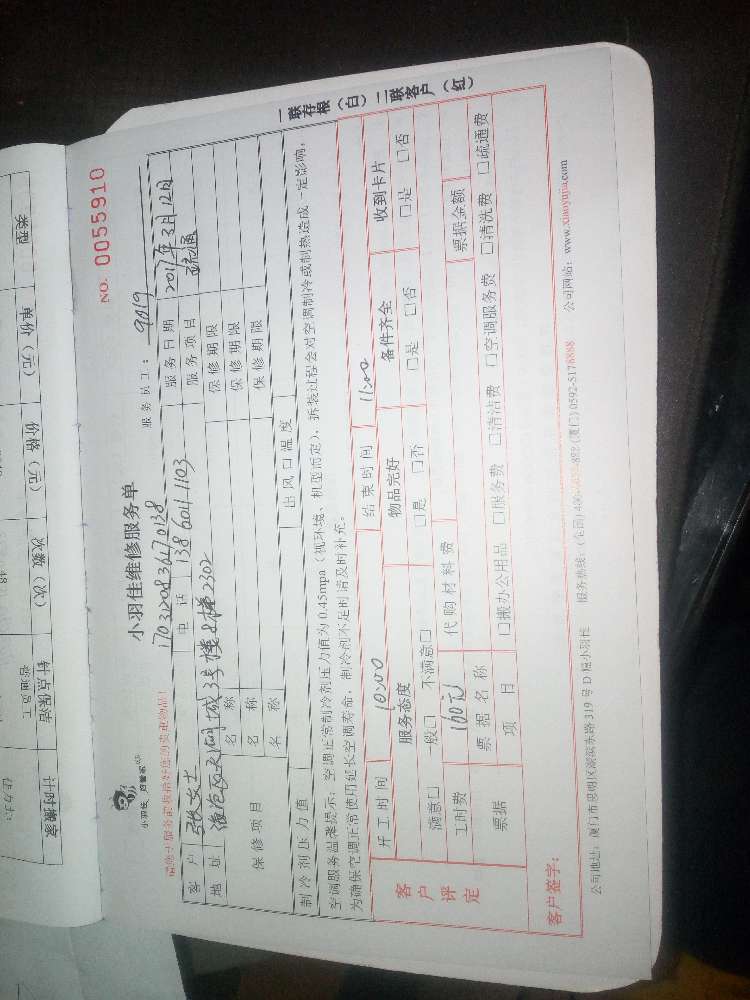 NO. 0055910
小羽佳维修服务单
小羽佳
服务员工：9019
17031208364170138
客户 张女士 电话 138 6041 1103 服务日期 2017年3月12日
地址 3号楼2梯2302 服务项目 疏通
保修项目
名称 保修期限
名称 保修期限
名称 保修期限
制冷剂压力值 出风口温度
空调服务温馨提示：空调正常制冷剂压力值为0.45mpa（视环境、机型而定），拆装过程会对空调制冷或制热造成一定影响，
为确保空调正常使用延长空调寿命，制冷剂不足时请及时补充。
一联存根（白）二联客户（红）
客户评定
开工时间 10:00 结束时间 11:00
服务态度 物品完好 备件齐全 收到卡片
满意□ 一般□ 不满意□ □是 □否 □是 □否 □是 □否
工时费 160元 代购材料费
票据 票据名称 票据金额
项目 □搬办公用品 □服务费 □清洁费 □空调服务费 □清洗费 □疏通费
客户签字：
公司地址：厦门市思明区湖滨东路319号D座小羽佳 服务热线：(全国)400- (厦门)0592-5178888 公司网站：www.xiaoyujia.com
类型
单价（元）
价格（元）
次数（次）
钟点保洁
普通员工
计时搬家